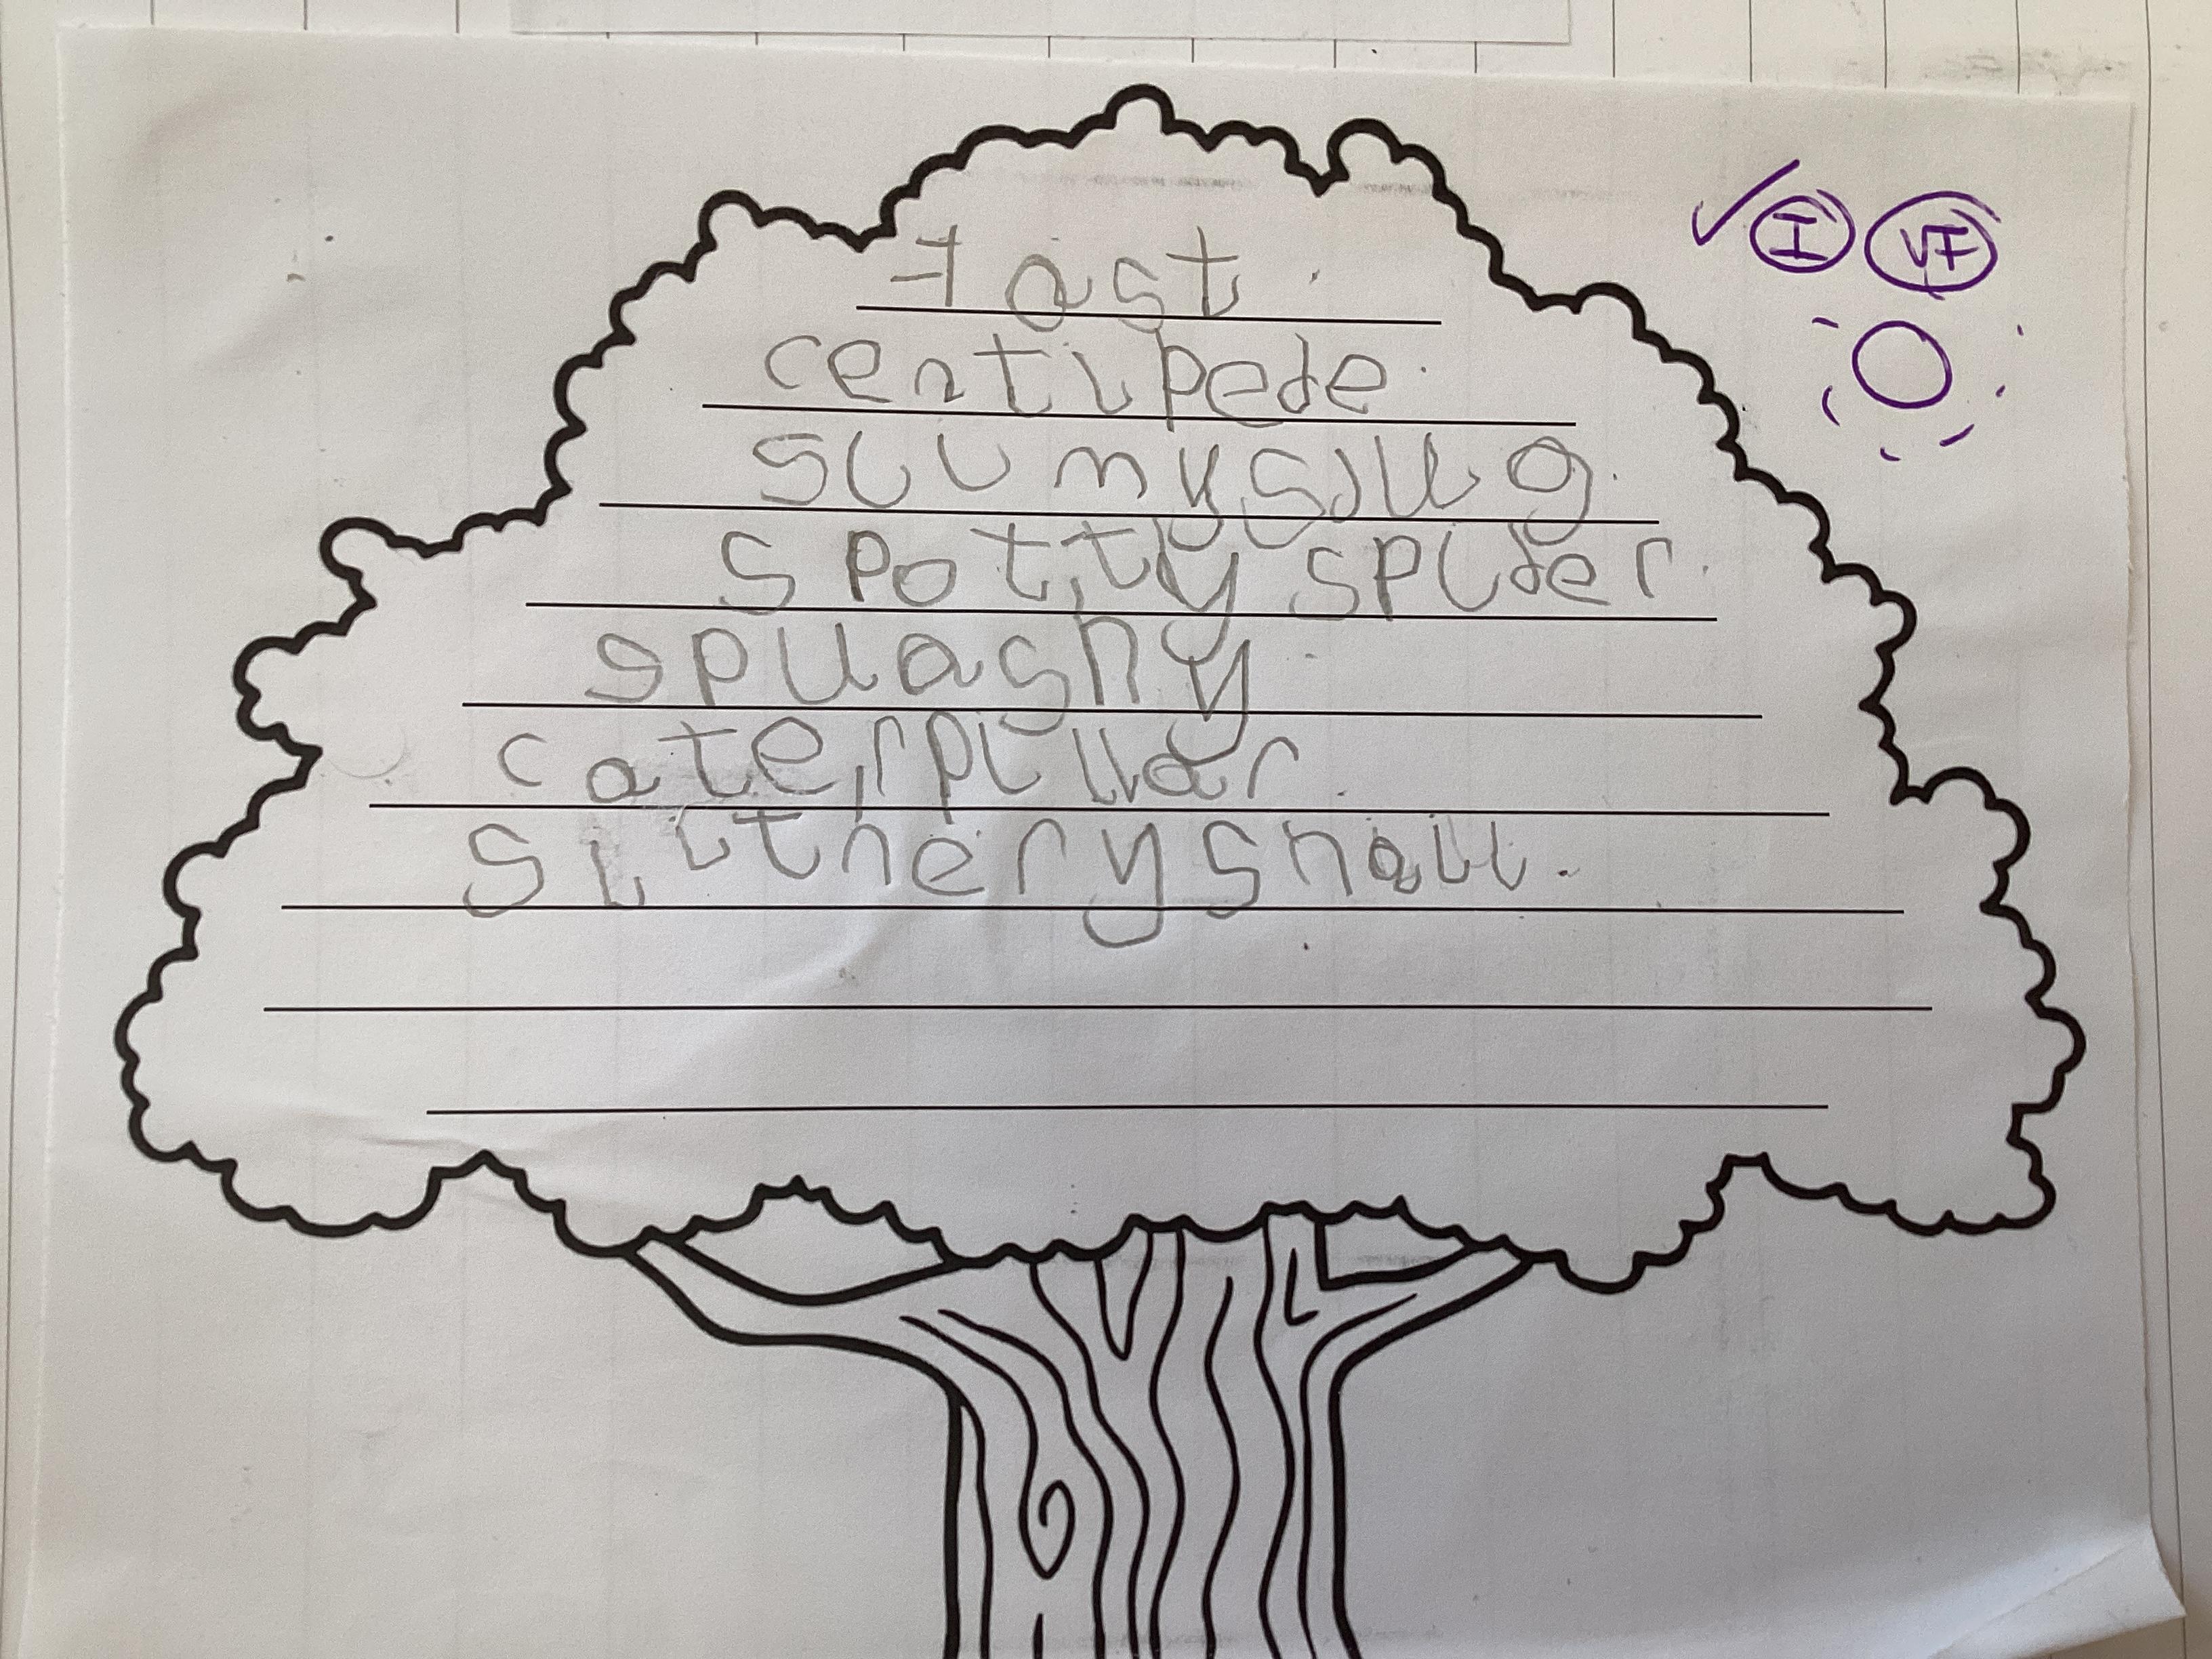 fast.
centipede.
slimy slug.
spotty spider.
spuashy.
caterpillar.
slithery snail.
I VF